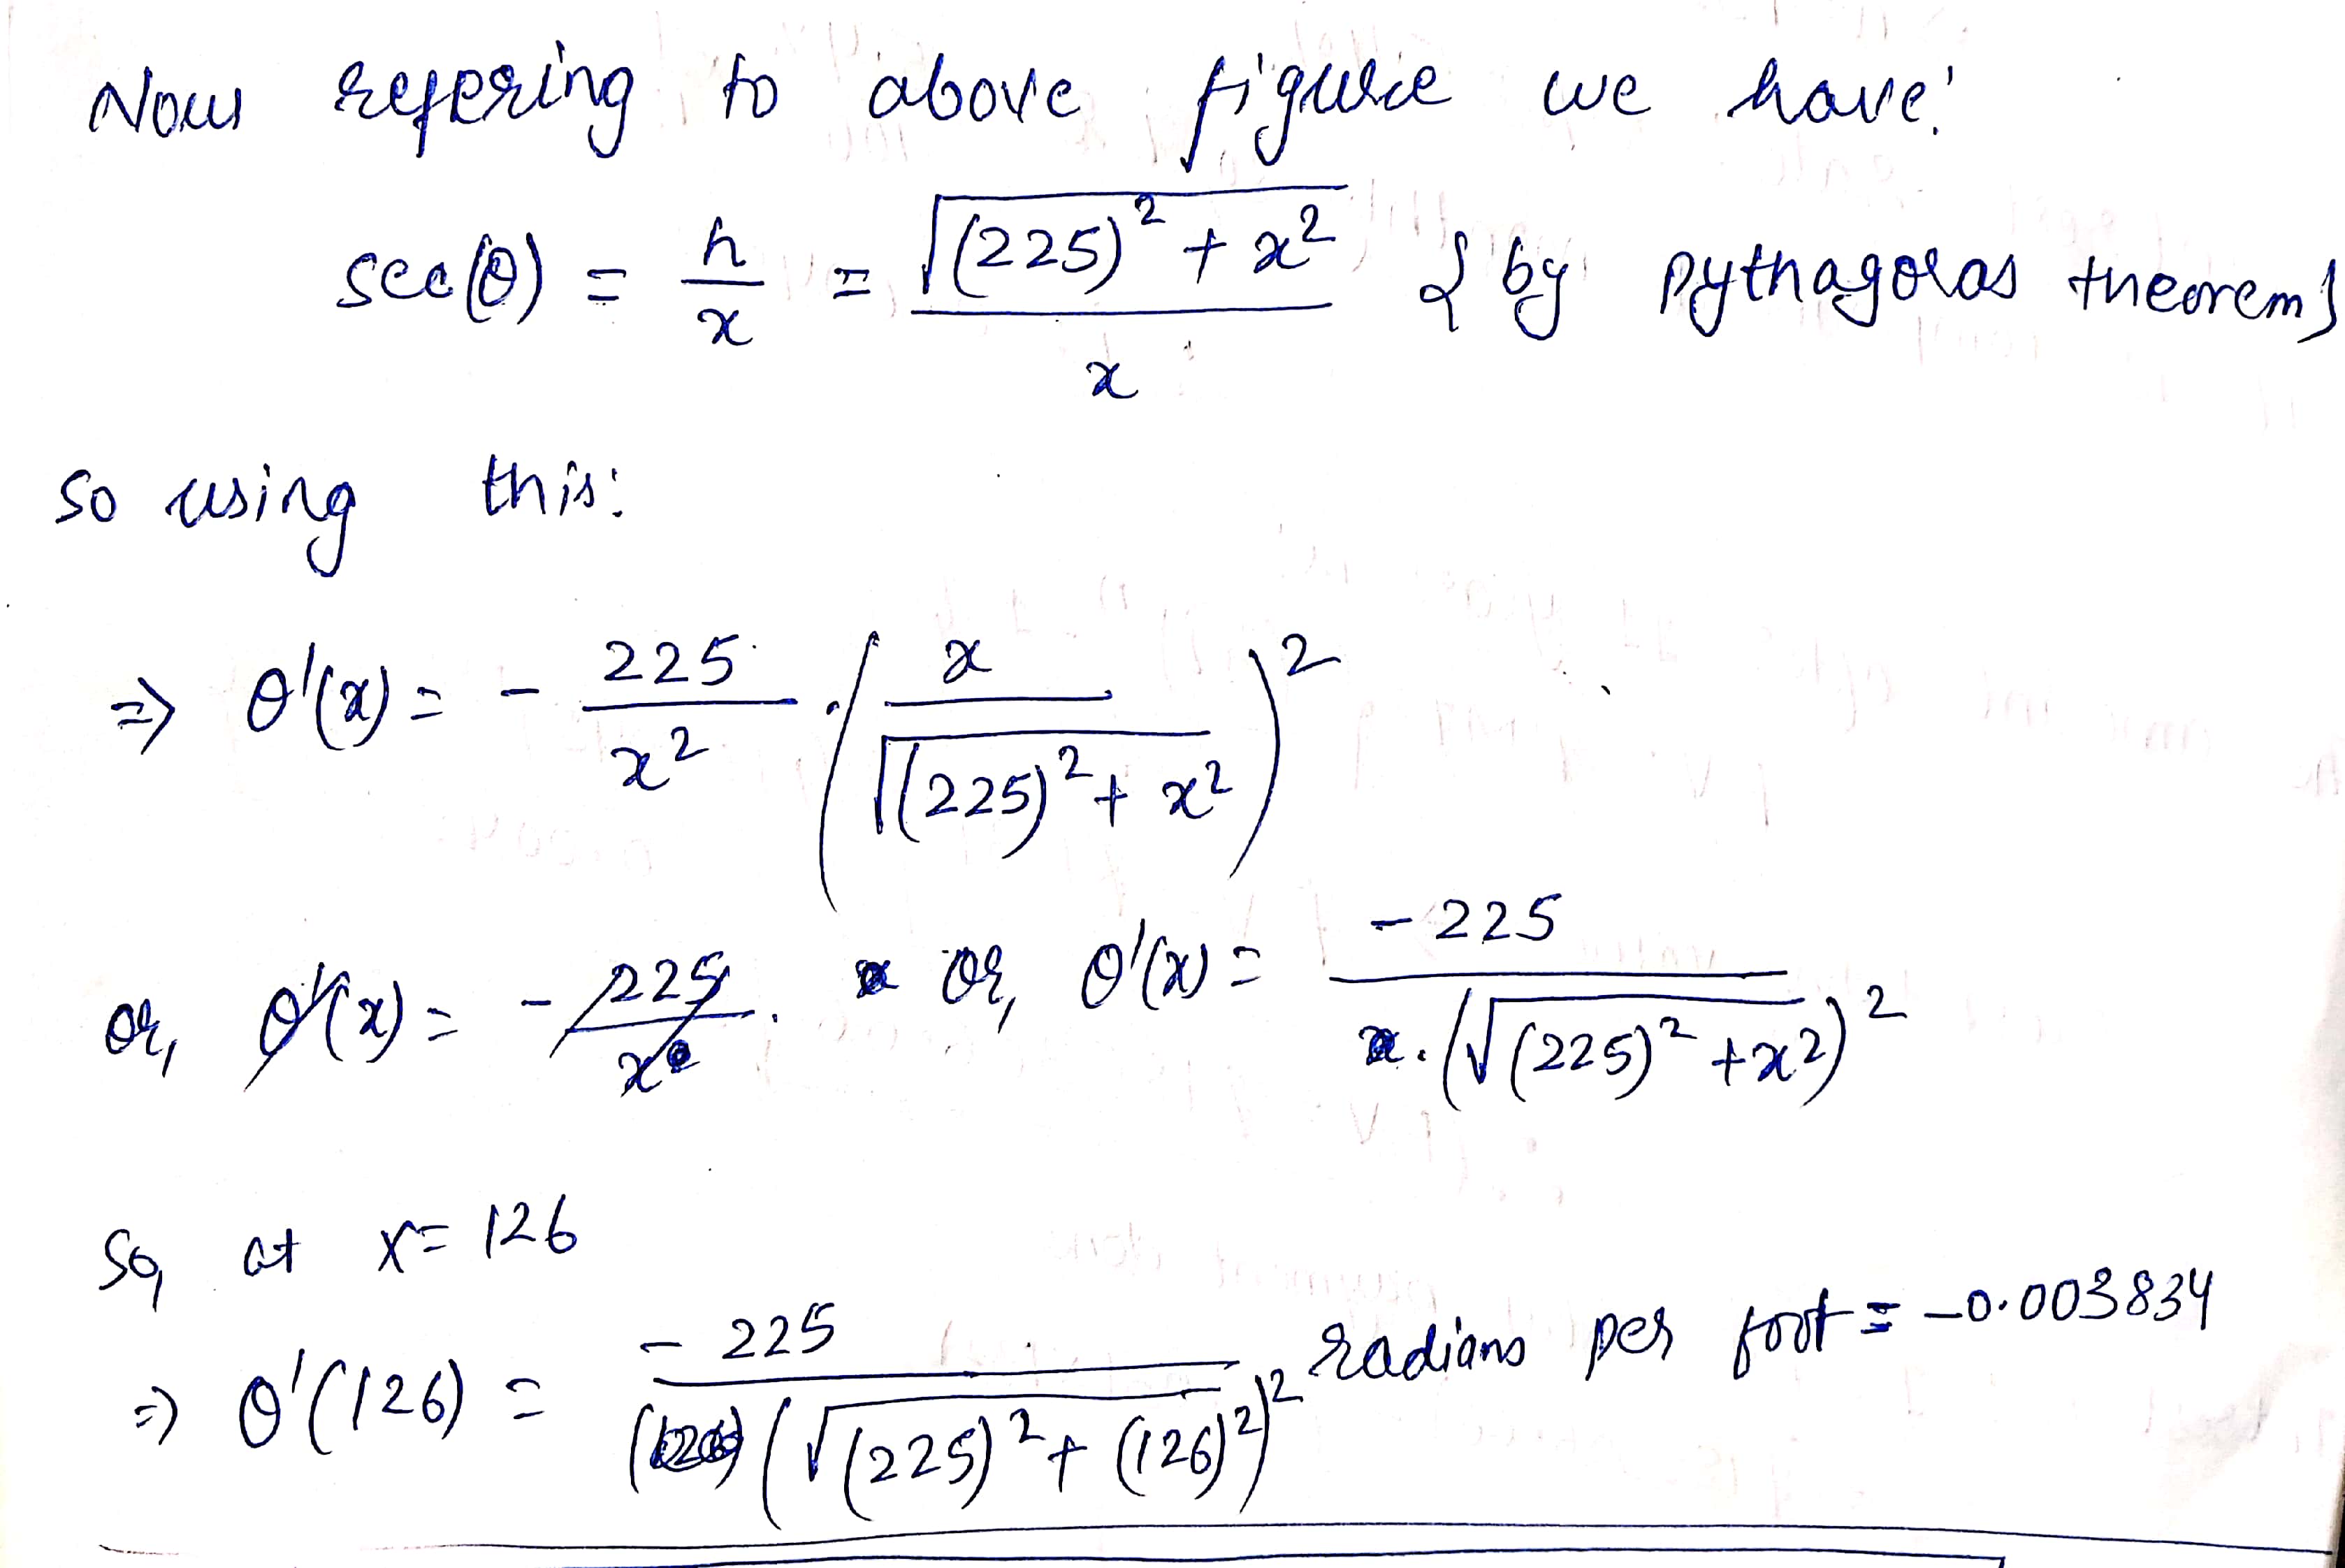 Now refering to above figure we have:
sec(θ) = h/x = √((225)² + x²)/x {by pythagoras theorem}
so using this:
⇒ θ'(x) = - 225/x² · (x/√((225)² + x²))²
or, θ'(x) = - 225/x . or, θ'(x) = -225/(√((225)² + x²))²
So, at x = 126
⇒ θ'(126) = -225/(√((225)² + (126)²))² radians per foot = -0.003834